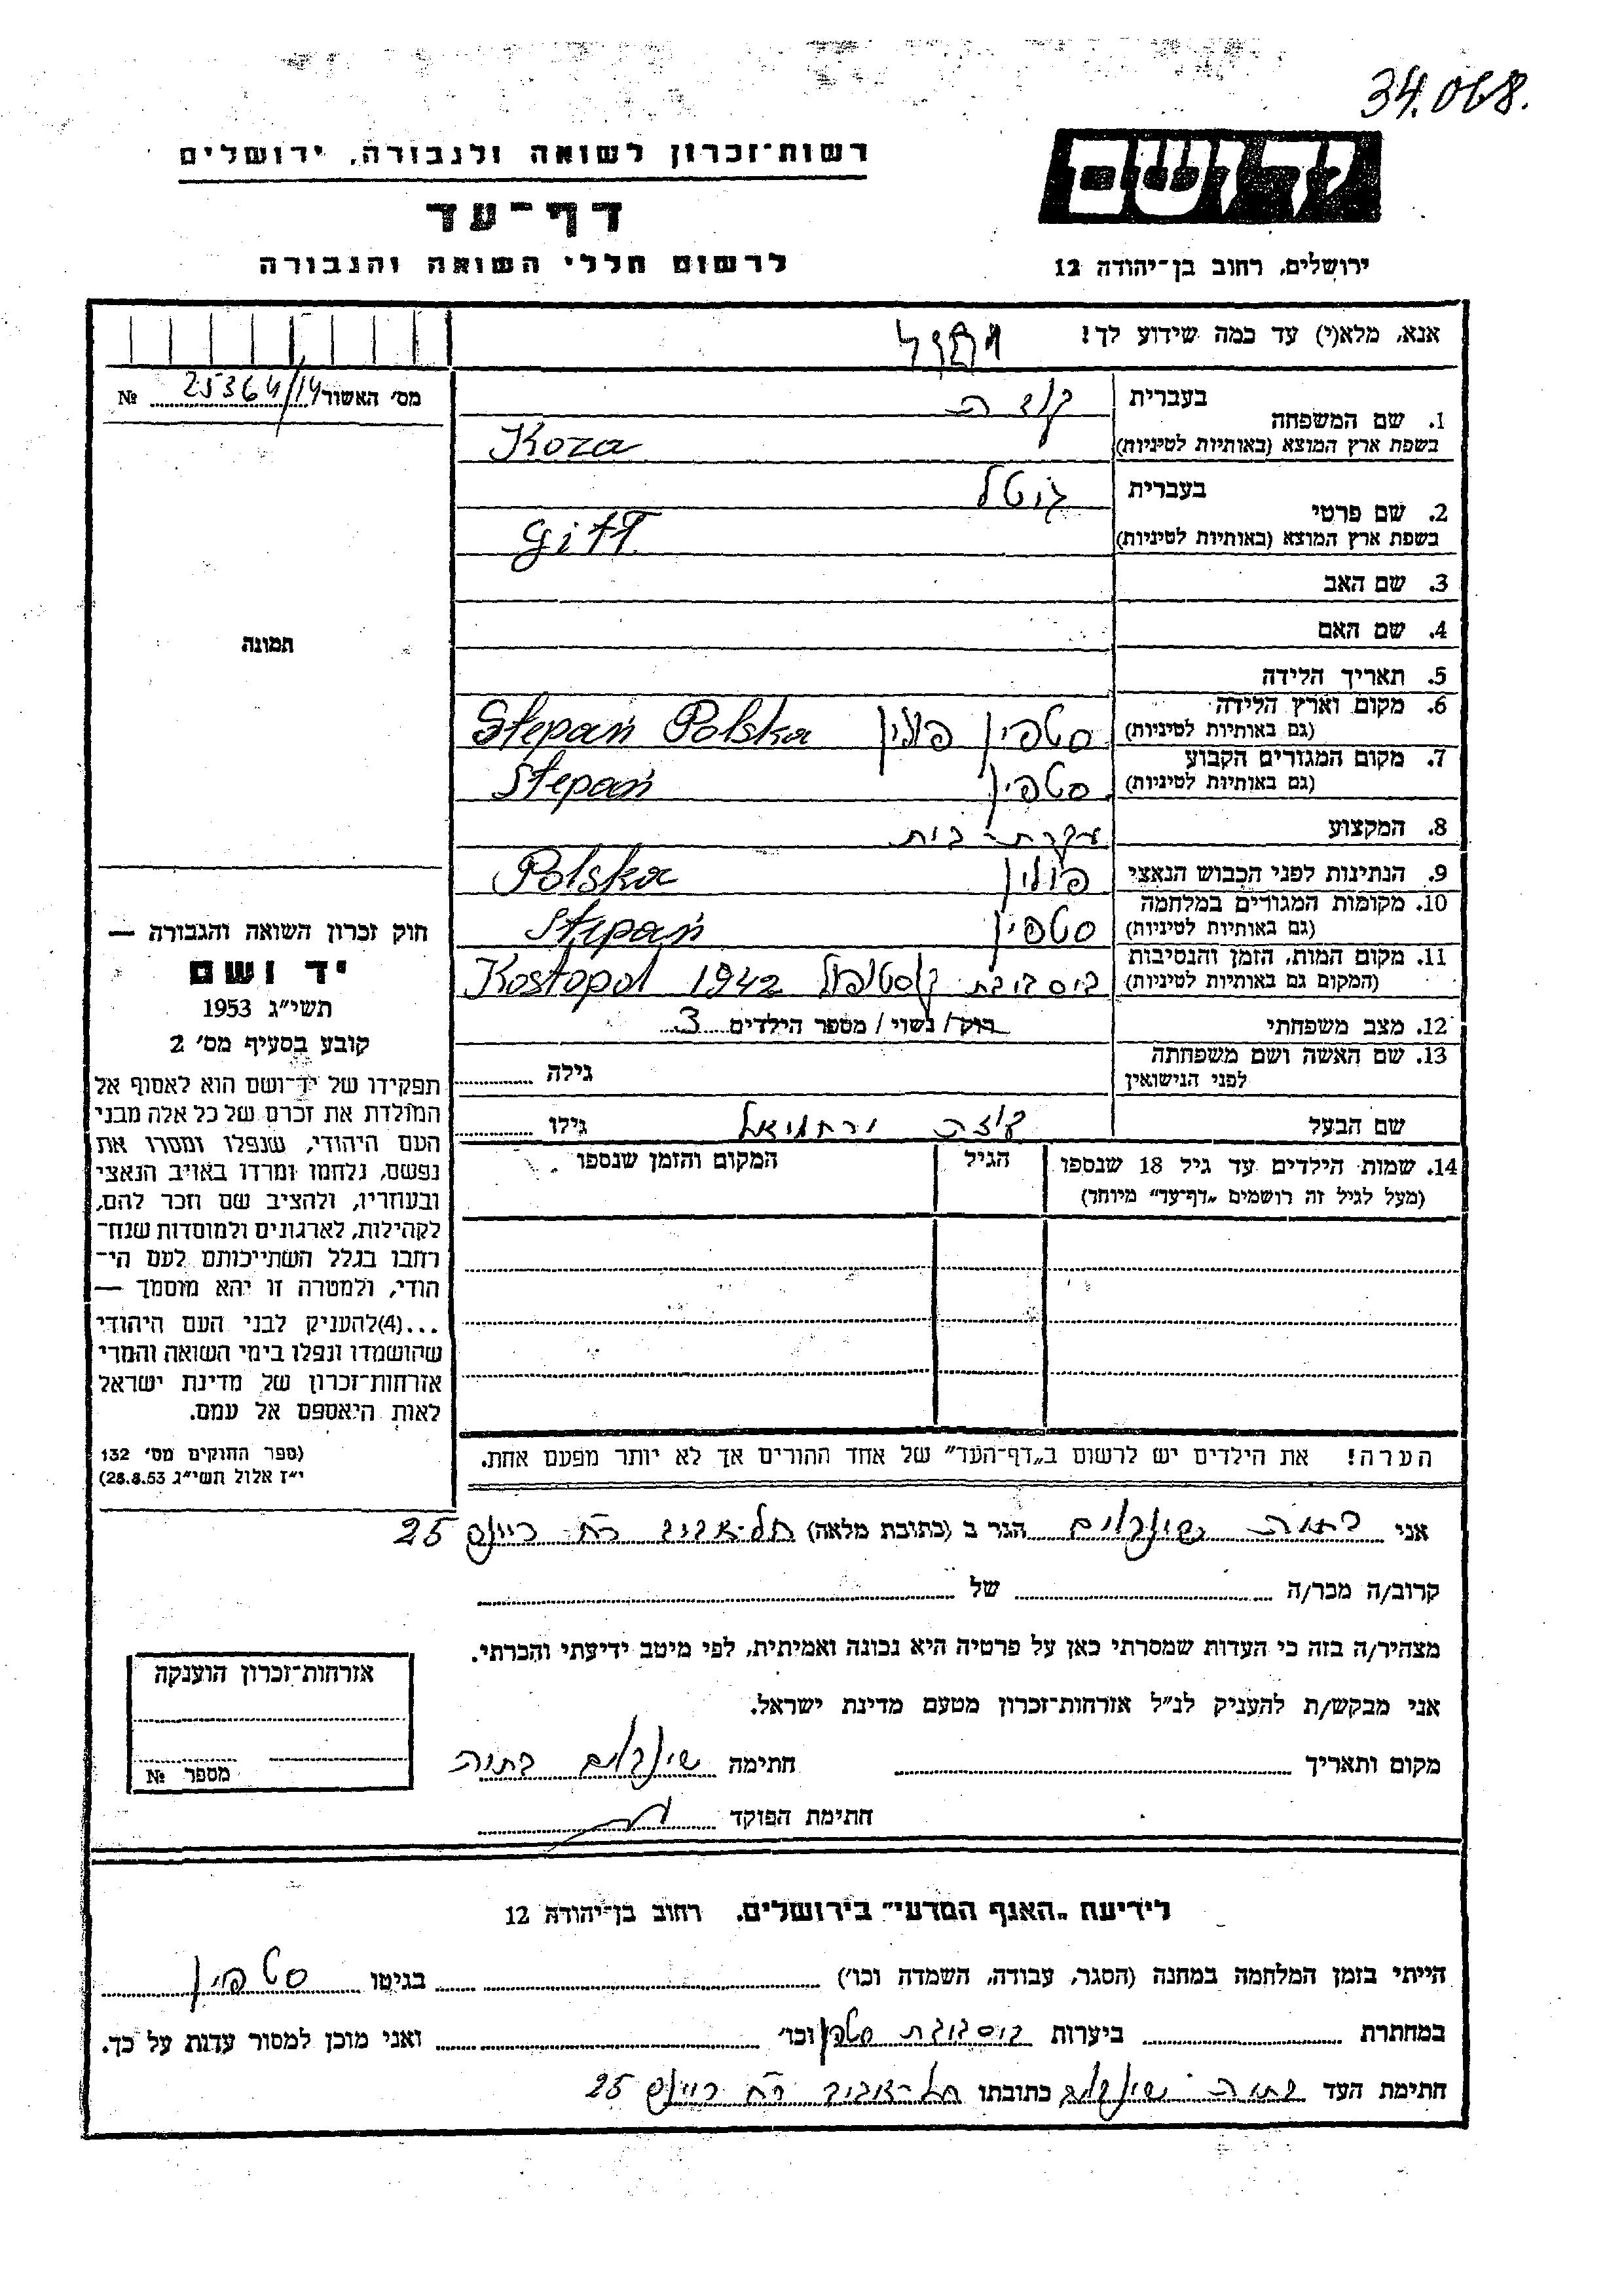 34.068.
יד ושם
רשות־זכרון לשואה ולגבורה, ירושלים
דף־עד
לרשום חללי השואה והגבורה
ירושלים, רחוב בן־יהודה 12
אנא, מלא(י) עד כמה שידוע לך!
מס' האשור 25364/14 №
1. שם המשפחה
בעברית קוזה
בשפת ארץ המוצא (באותיות לטיניות) Koza
2. שם פרטי
בעברית גיטל
בשפת ארץ המוצא (באותיות לטיניות) Gitl
3. שם האב
4. שם האם
5. תאריך הלידה
6. מקום וארץ הלידה
(גם באותיות לטיניות) סטפין פולין Stepań Polska
7. מקום המגורים הקבוע
(גם באותיות לטיניות) סטפין Stepań
8. המקצוע עקרת-בית
9. הנתינות לפני הכבוש הנאצי פולין Polska
10. מקומות המגורים במלחמה
(גם באותיות לטיניות) סטפין Stepań
11. מקום המות, הזמן והנסיבות
(המקום גם באותיות לטיניות) בסביבת קוסטופול Kostopol 1942
12. מצב משפחתי רוק/ נשוי/ מספר הילדים 3
13. שם האשה ושם משפחתה
לפני הנישואין
גילה
שם הבעל קוזה ירחמיאל גילו
14. שמות הילדים עד גיל 18 שנספו
(מעל לגיל זה רושמים „דף־עד" מיוחד)
הגיל
המקום והזמן שנספו
הערה! את הילדים יש לרשום ב„דף־העד" של אחד ההורים אך לא יותר מפעם אחת.
תמונה
חוק זכרון השואה והגבורה —
יד ושם
תשי"ג 1953
קובע בסעיף מס' 2
תפקידו של יד־ושם הוא לאסוף אל
המולדת את זכרם של כל אלה מבני
העם היהודי, שנפלו ומסרו את
נפשם, נלחמו ומרדו באויב הנאצי
ובעוזריו, ולהציב שם וזכר להם,
לקהילות, לארגונים ולמוסדות שנח־
רחבו בגלל השתייכותם לעם הי־
הודי, ולמטרה זו יהא מוסמך —
...(4)להעניק לבני העם היהודי
שהושמדו ונפלו בימי השואה והמרי
אזרחות־זכרון של מדינת ישראל
לאות היאספם אל עמם.
(ספר החוקים מס' 132
י"ז אלול תשי"ג 28.8.53)
אני בתיה שינבוים הגר ב (כתובת מלאה) תל-אביב רח' ריינס 25
קרוב/ה מכר/ה של
מצהיר/ה בזה כי העדות שמסרתי כאן על פרטיה היא נכונה ואמיתית, לפי מיטב ידיעתי והכרתי.
אני מבקש/ת להעניק לנ"ל אזרחות־זכרון מטעם מדינת ישראל.
מקום ותאריך חתימה שינבוים בתיה
חתימת הפוקד
אזרחות־זכרון הוענקה
מספר №
לידיעת „האגף המדעי" בירושלים. רחוב בן־יהודה 12
הייתי בזמן המלחמה במחנה (הסגר, עבודה, השמדה וכו') בגיטו סטפין
במחתרת ביערות בסביבת סטפין וכו' ואני מוכן למסור עדות על כך.
חתימת העד בתיה שינבוים כתובתו תל-אביב רח' ריינס 25